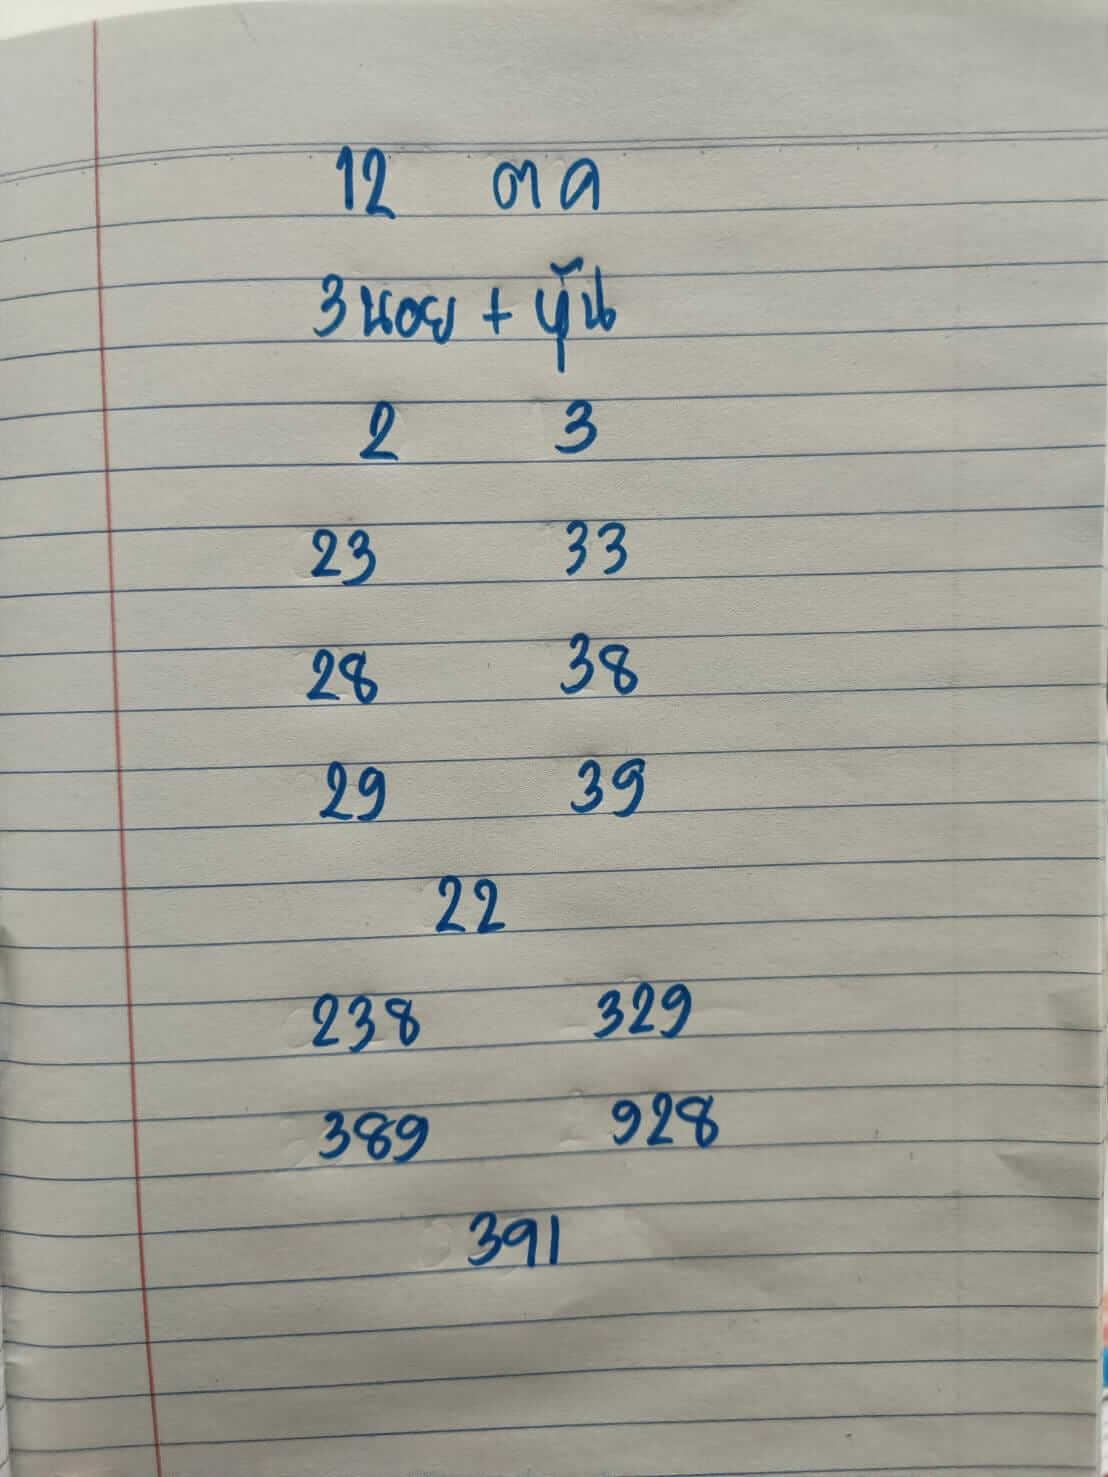 12 ตค
3นอย + หุ้น
2 3
23 33
28 38
29 39
22
238 329
389 928
391